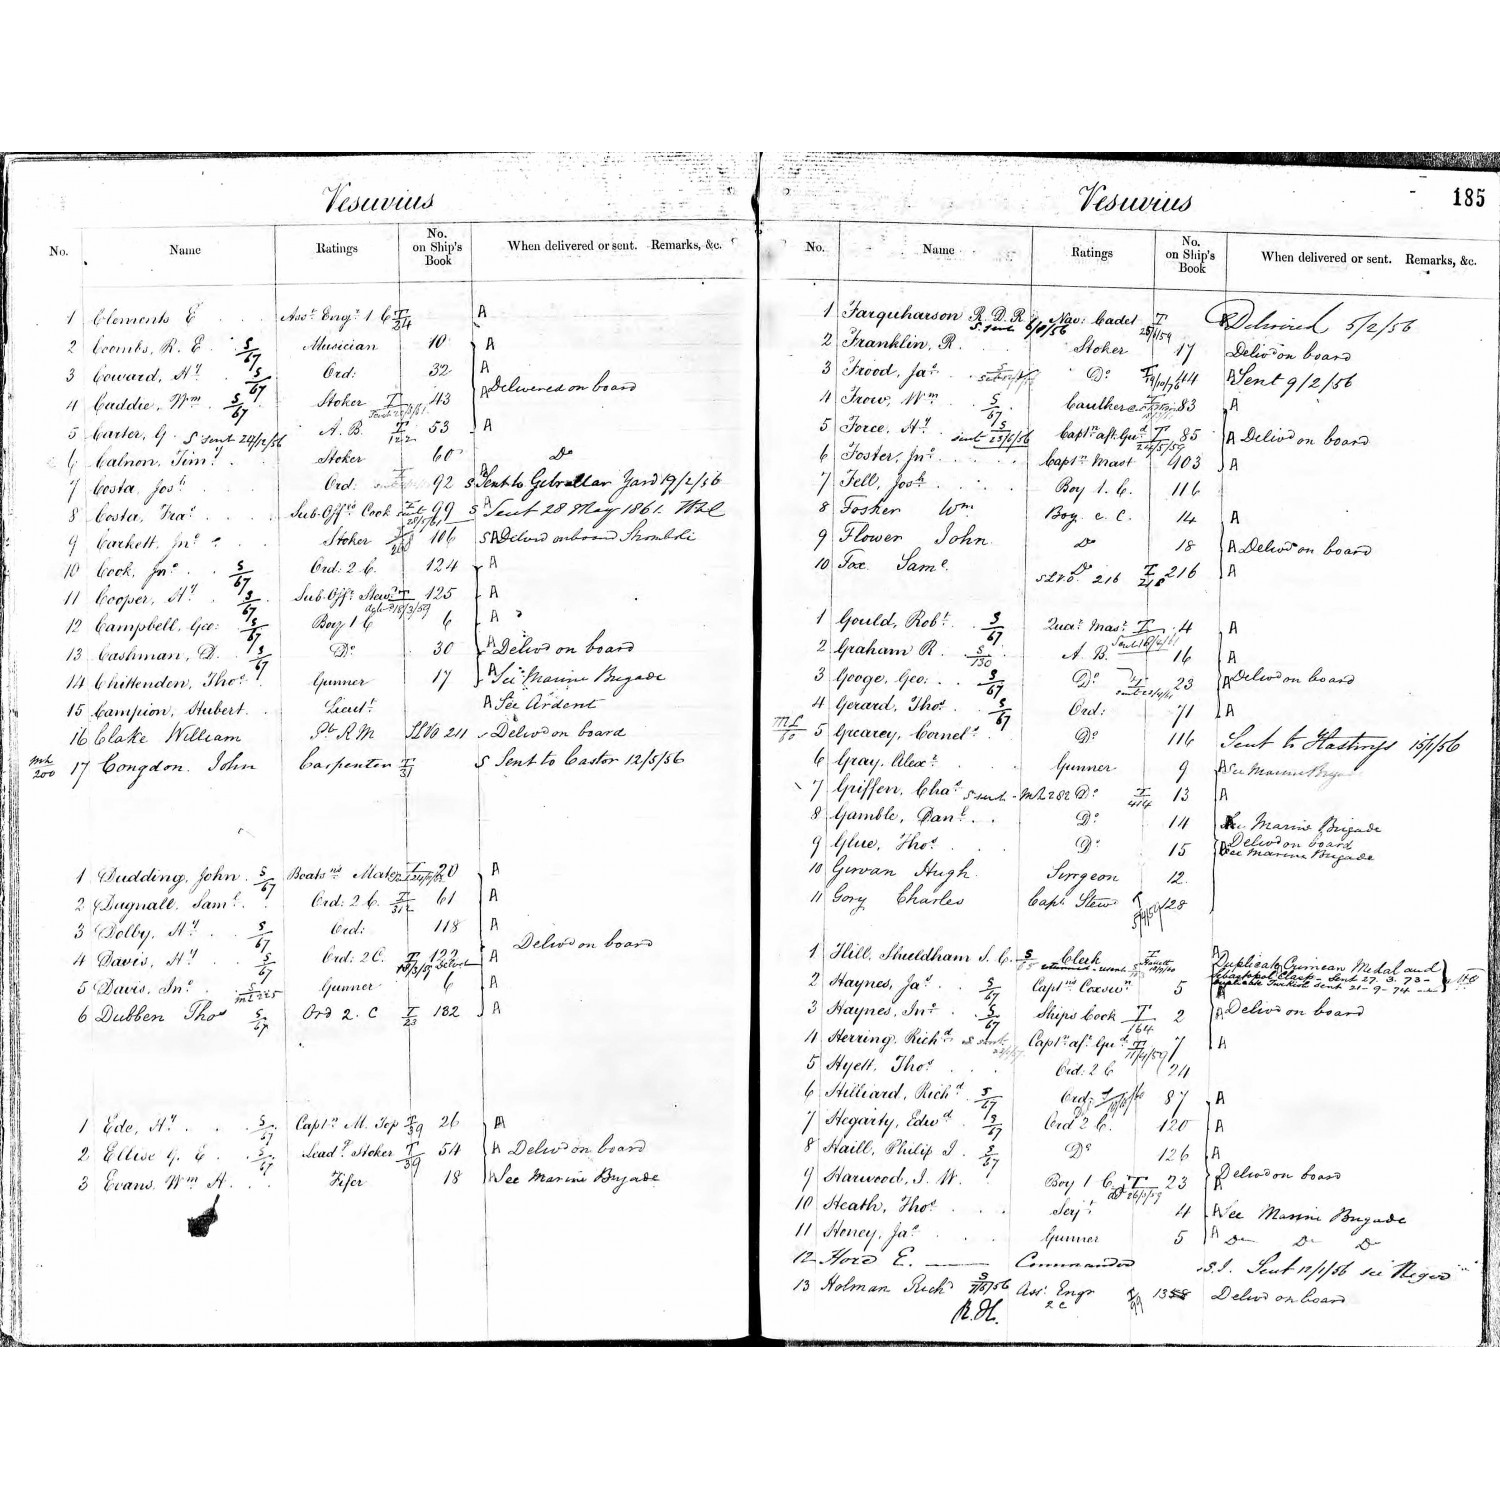 Vesuvius
No. Name Ratings No. on Ship's Book When delivered or sent. Remarks, &c.
1 Clements E Asst Engr 1 C T/24 A
2 Coombs, R. E. S/67 Musician 10 A
3 Coward, Hy S/67 Ord: 32 A
4 Caddie, Wm S/67 Stoker T 43 A Delivered on board
5 Carter, G. S sent 24/12/56 A. B. T/122 53 A
6 Calnon, Timy Stoker 60 Do
7 Costa Josh Ord: 92 S A Sent to Gibraltar Yard 19/2/56
8 Costa, Fras Sub. Offrs Cook 99 S A Sent 28 May 1861.
9 Carkett, Jno Stoker 106 S A Delivd on board Stromboli
10 Cook, Jno S/67 Ord: 2 C. 124 A
11 Cooper, Hy S/67 Sub. Offrs Stewd T 18/3/59 125 A
12 Campbell, Geo: S/67 Boy 1 C 6 A
13 Cashman, D. S/67 Do 30 A Delivd on board
14 Chittenden, Thos Gunner 17 A See Marine Brigade
15 Campion, Hubert Lieut: A See Ardent
16 Clake William Pte R M SLVO 211 Delivd on board
17 Congdon. John Carpenter T/31 S Sent to Castor 12/5/56
1 Dudding, John S/67 Boats nd Mate T 20 A
2 Dugnall. Saml Ord: 2 C. T/312 61 A
3 Dolby, Hy S/67 Ord: 118 A
Delivd on board
4 Davis, Hy S/67 Ord: 2 C. T 122 A
5 Davis, Jno Gunner 6 A
6 Dubben Thos S/67 Ord 2. C T/23 132 A
1 Ede, Hy S/67 Captn M. Top T/39 26 A
2 Ellise G. E. S/67 Leadg Stoker T/39 54 A Delivd on board
3 Evans Wm H. Fifer 18 A See Marine Brigade
Vesuvius 185
No. Name Ratings No. on Ship's Book When delivered or sent. Remarks, &c.
1 Farquharson R. D. R. Nav: Cadet T Delivered 5/2/56
2 Franklin, R. Stoker 17 Delivd on board
3 Frood, Jas Do T 44 A Sent 9/2/56
4 Frow, Wm S/67 Caulkers 83 A
5 Force, Hy S sent 23/6/56 Captn aft Gud T 24/5/59 85 A Delivd on board
6 Foster, Jno Captn Mast 103 A
7 Fell, Josh Boy 1. C. 116
8 Fosher Wm Boy 2. C. 14 A
9 Flower John Do 18 A Delivd on board
10 Fox Saml Do SLVO. 216 T/218 216 A
1 Gould, Robt S/67 Quar Mastr T 4 A
2 Graham R. S/130 A. B. 16 A
3 Googe, Geo: S/67 Do 23 A Delivd on board
4 Gerard, Thos S/67 Ord: 71 A
5 Gearey, Cornels Do 116 Sent to Hastings 15/1/56
6 Gray, Alexr Gunner 9 A See Marine Brigade
7 Griffen, Chas S sent ML 282 Do T/414 13 A
8 Gamble, Danl Do 14 See Marine Brigade
9 Glue, Thos Do 15 Delivd on board See Marine Brigade
10 Girvan Hugh Surgeon 12.
11 Gory Charles Capt Stewd 128
1 Hill, Shuldham S. C. Clerk A Duplicate Crimean Medal and
Sebastopol Clasp - Sent 27. 3. 73 -
Duplicate Turkish sent 21 - 9 - 74
2 Haynes, Jas S/67 Capt nd Coxswn 5 A
3 Haynes, Jno S/67 Ships Cook T/164 2 A Delivd on board
4 Herring, Richd S sent Captn aft Gud T 11/4/59 7 A
5 Hyett, Thos Ord: 2 C 24
6 Hilliard, Richd S/67 Ord: 87 A
7 Hegarty, Edwd S/67 Ord 2 C. 120 A
8 Haill, Philip J. S/67 Do 126 A
9 Harwood, J. W. Boy 1 C. T 23 A Delivd on board
10 Heath, Thos Serjt 4 A See Marine Brigade
11 Honey, Jas Gunner 5 A Do Do Do
12 Hore E. Commander S.S. Sent 12/1/56 see Niger
13 Holman Richd S 7/5/56 Asst Engr 2 C Delivd on board
R. H.